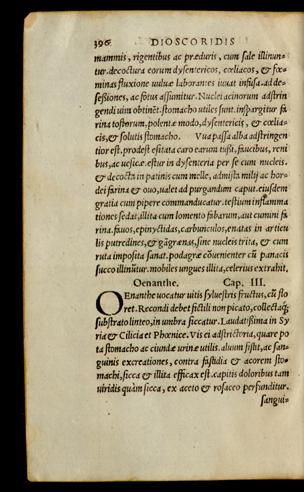 396 DIOSCORIDIS
mammis, rigentibus ac præduris, cum sale illinun-
tur. decoctura eorum dysentericos, cœliacos, & fœ-
minas fluxione uuluæ laborantes iuuat infusa. ad de-
sessiones, ac fotus assumitur. Nuclei acinorum adstrin
gendi uim obtinẽt. stomacho utiles sunt. inspargitur fa
rina tostorum, polentæ modo, dysentericis, & cœlia-
cis, & solutis stomacho. Vua passa alba adstringen
tior est. prodest esitata caro earum tußi, faucibus, reni
bus, ac uesicæ. estur in dysenteria per se cum nucleis.
& decocta in patinis cum melle, admista milij ac hor-
dei farina & ouo, ualet ad purgandum caput. eiusdem
gratia cum pipere commanducatur. testium inflamma
tiones sedat, illita cum lomento fabarum, aut cumini fa
rina. fauos, epinyctidas, carbunculos, enatas in articu
lis putredines, & gãgrænas, sine nucleis trita, & cum
ruta imposita sanat. podagræ cõuenienter cũ panacis
succo illinũtur. mobiles ungues illita, celerius extrahit.
Oenanthe. Cap. III.
OEnanthe uocatur uitis syluestris fructus, cũ flo
ret. Recondi debet fictili non picato, collectaq́;
substrato linteo, in umbra siccatur. Laudatißima in Sy
ria & Cilicia et Phœnice. Vis ei adstrictoria, quare po
ta stomacho ac ciundæ urinæ utilis. aluum sistit, ac san-
guinis excreationes, contra fastidia & acorem sto-
machi, sicca & illita efficax est. capitis doloribus tam
uiridis quàm sicca, ex aceto & rosaceo perfunditur.
sangui-